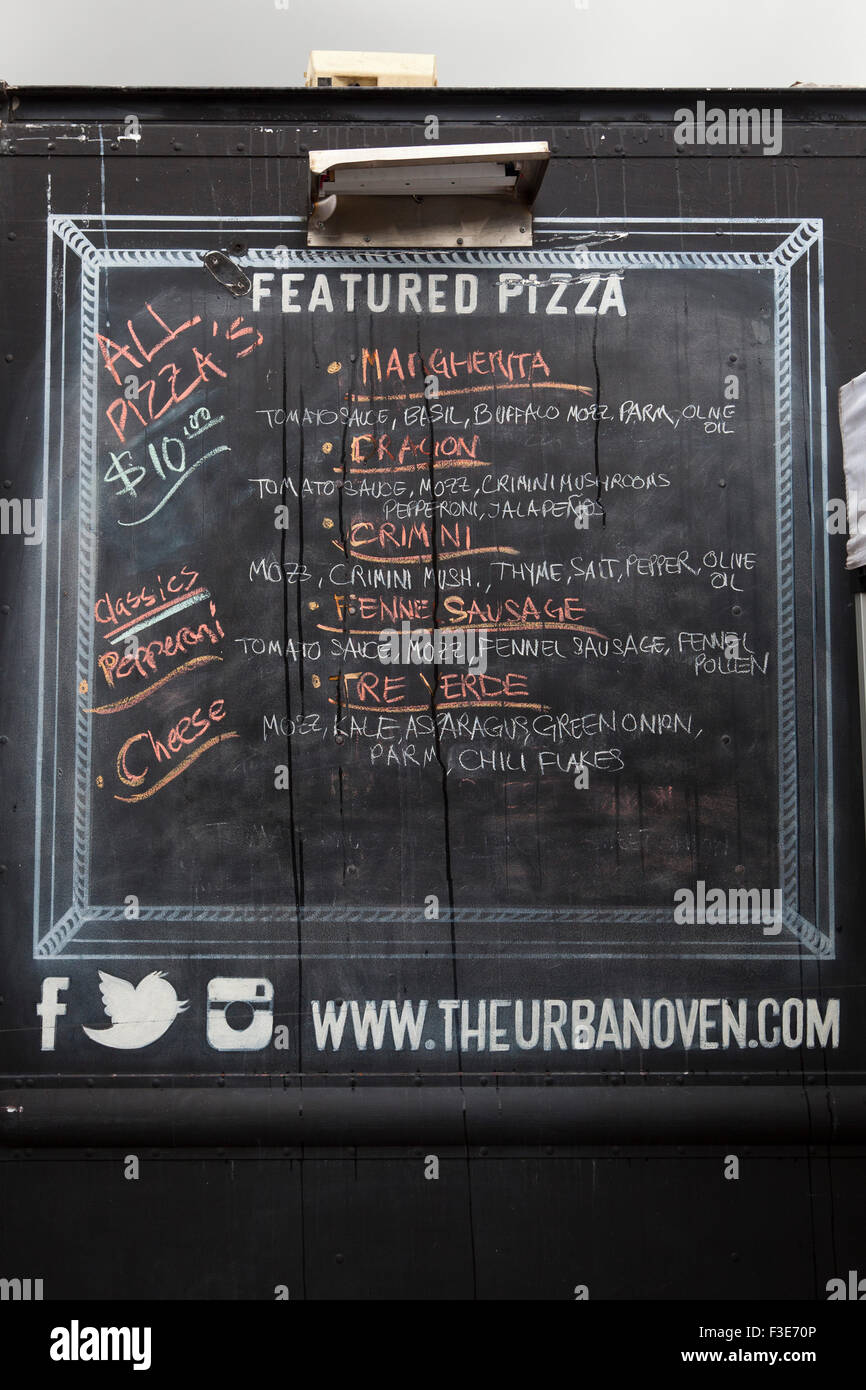 FEATURED PIZZA
ALL
PIZZA'S
$10.00
Classics
Pepperoni
Cheese
MARGHERITA
TOMATO SAUCE, BASIL, BUFFALO MOZZ. PARM, OLIVE
OIL
DRAGON
TOMATO SAUCE, MOZZ, CRIMINI MUSHROOMS
PEPPERONI, JALAPEÑOS
CRIMINI
MOZZ, CRIMINI MUSH., THYME, SALT, PEPPER, OLIVE
OIL
FENNEL SAUSAGE
TOMATO SAUCE, MOZZ, FENNEL SAUSAGE, FENNEL
POLLEN
TRE VERDE
MOZZ, KALE, ASPARAGUS, GREEN ONION,
PARM, CHILI FLAKES
f
WWW.THEURBANOVEN.COM
alamy
Image ID: F3E70P
www.alamy.com